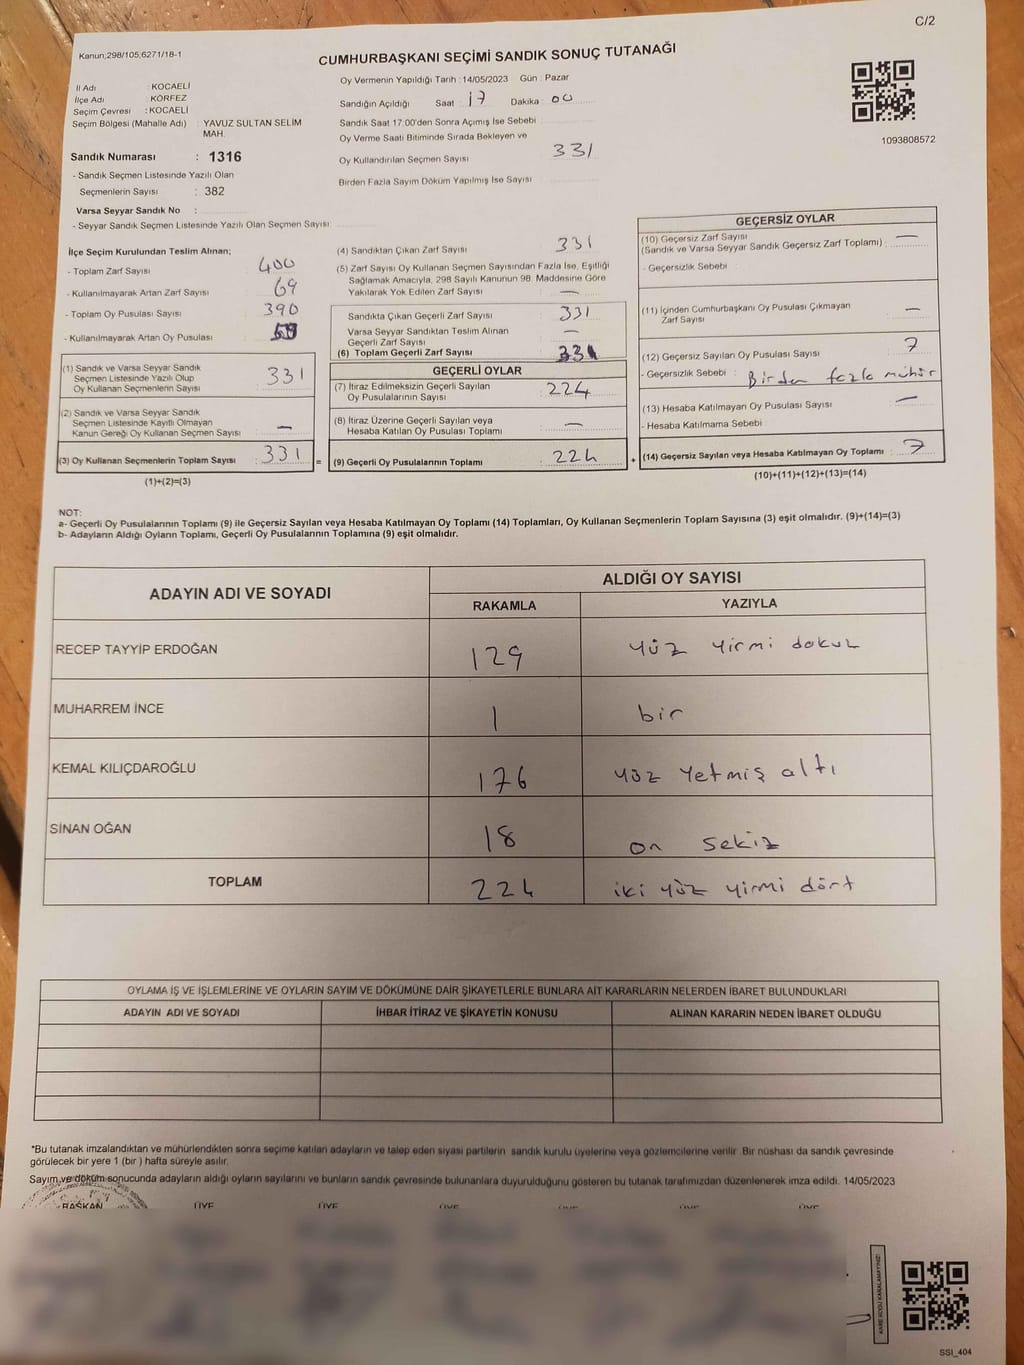 C/2
Kanun:298/105;6271/18-1
CUMHURBAŞKANI SEÇİMİ SANDIK SONUÇ TUTANAĞI
İl Adı : KOCAELİ
İlçe Adı : KÖRFEZ
Seçim Çevresi : KOCAELİ
Seçim Bölgesi (Mahalle Adı) : YAVUZ SULTAN SELİM
MAH.
Sandık Numarası : 1316
- Sandık Seçmen Listesinde Yazılı Olan
Seçmenlerin Sayısı : 382
Varsa Seyyar Sandık No :
- Seyyar Sandık Seçmen Listesinde Yazılı Olan Seçmen Sayısı:
Oy Vermenin Yapıldığı Tarih : 14/05/2023 Gün : Pazar
Sandığın Açıldığı Saat : 17 Dakika : 00
Sandık Saat 17:00'den Sonra Açımış İse Sebebi :
Oy Verme Saati Bitiminde Sırada Bekleyen ve
Oy Kullandırılan Seçmen Sayısı : 331
Birden Fazla Sayım Döküm Yapılmış İse Sayısı :
1093808572
İlçe Seçim Kurulundan Teslim Alınan;
- Toplam Zarf Sayısı : 400
- Kullanılmayarak Artan Zarf Sayısı : 69
- Toplam Oy Pusulası Sayısı : 390
- Kullanılmayarak Artan Oy Pusulası :
(1) Sandık ve Varsa Seyyar Sandık
Seçmen Listesinde Yazılı Olup
Oy Kullanan Seçmenlerin Sayısı : 331
(2) Sandık ve Varsa Seyyar Sandık
Seçmen Listesinde Kayıtlı Olmayan
Kanun Gereği Oy Kullanan Seçmen Sayısı : —
(3) Oy Kullanan Seçmenlerin Toplam Sayısı : 331 =
(1)+(2)=(3)
(4) Sandıktan Çıkan Zarf Sayısı : 331
(5) Zarf Sayısı Oy Kullanan Seçmen Sayısından Fazla İse, Eşitliği
Sağlamak Amacıyla, 298 Sayılı Kanunun 98. Maddesine Göre
Yakılarak Yok Edilen Zarf Sayısı : —
Sandıkta Çıkan Geçerli Zarf Sayısı : 331
Varsa Seyyar Sandıktan Teslim Alınan
Geçerli Zarf Sayısı : —
(6) Toplam Geçerli Zarf Sayısı : 331
GEÇERLİ OYLAR
(7) İtiraz Edilmeksizin Geçerli Sayılan
Oy Pusulalarının Sayısı : 224
(8) İtiraz Üzerine Geçerli Sayılan veya
Hesaba Katılan Oy Pusulası Toplamı : —
(9) Geçerli Oy Pusulalarının Toplamı : 224 +
GEÇERSİZ OYLAR
(10) Geçersiz Zarf Sayısı
(Sandık ve Varsa Seyyar Sandık Geçersiz Zarf Toplamı) : —
- Geçersizlik Sebebi :
(11) İçinden Cumhurbaşkanı Oy Pusulası Çıkmayan
Zarf Sayısı : —
(12) Geçersiz Sayılan Oy Pusulası Sayısı : 7
- Geçersizlik Sebebi : Birden fazla mühür
(13) Hesaba Katılmayan Oy Pusulası Sayısı : —
- Hesaba Katılmama Sebebi :
(14) Geçersiz Sayılan veya Hesaba Katılmayan Oy Toplamı : 7
(10)+(11)+(12)+(13)=(14)
NOT:
a- Geçerli Oy Pusulalarının Toplamı (9) ile Geçersiz Sayılan veya Hesaba Katılmayan Oy Toplamı (14) Toplamları, Oy Kullanan Seçmenlerin Toplam Sayısına (3) eşit olmalıdır. (9)+(14)=(3)
b- Adayların Aldığı Oyların Toplamı, Geçerli Oy Pusulalarının Toplamına (9) eşit olmalıdır.
ADAYIN ADI VE SOYADI
ALDIĞI OY SAYISI
RAKAMLA YAZIYLA
RECEP TAYYİP ERDOĞAN 129 yüz yirmi dokuz
MUHARREM İNCE 1 bir
KEMAL KILIÇDAROĞLU 176 yüz yetmiş altı
SİNAN OĞAN 18 on sekiz
TOPLAM 224 iki yüz yirmi dört
OYLAMA İŞ VE İŞLEMLERİNE VE OYLARIN SAYIM VE DÖKÜMÜNE DAİR ŞİKAYETLERLE BUNLARA AİT KARARLARIN NELERDEN İBARET BULUNDUKLARI
ADAYIN ADI VE SOYADI İHBAR İTİRAZ VE ŞİKAYETİN KONUSU ALINAN KARARIN NEDEN İBARET OLDUĞU
*Bu tutanak imzalandıktan ve mühürlendikten sonra seçime katılan adayların ve talep eden siyasi partilerin sandık kurulu üyelerine veya gözlemcilerine verilir. Bir nüshası da sandık çevresinde
görülecek bir yere 1 (bir ) hafta süreyle asılır.
Sayım ve döküm sonucunda adayların aldığı oyların sayılarını ve bunların sandık çevresinde bulunanlara duyurulduğunu gösteren bu tutanak tarafımızdan düzenlenerek imza edildi. 14/05/2023
BAŞKAN ÜYE ÜYE ÜYE ÜYE ÜYE ÜYE
KARE KODU KARALAMAYINIZ!
SSI_404